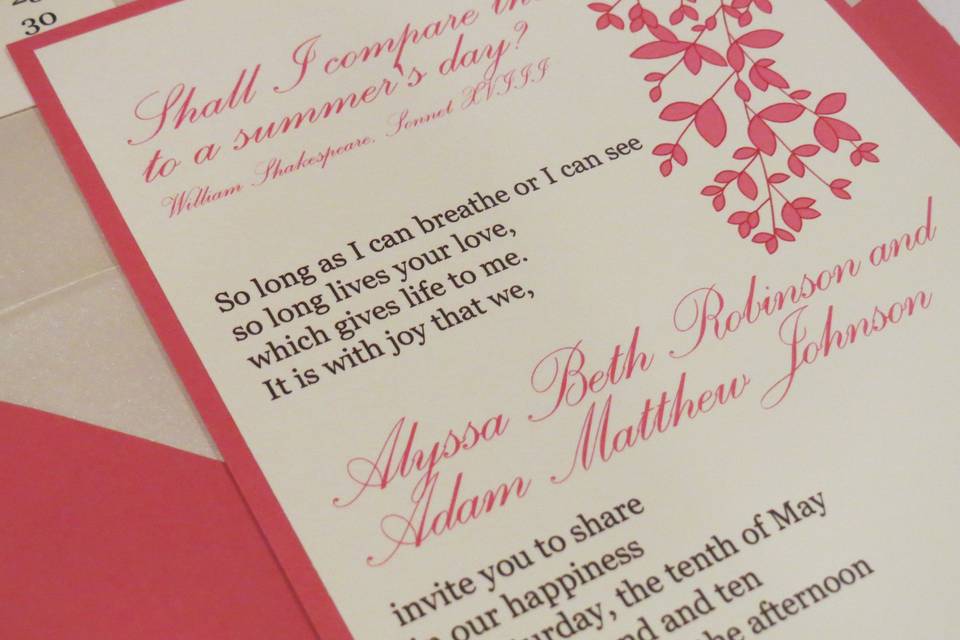 30
Shall I compare
to a summer's day?
William Shakespeare, Sonnet XVIII
So long as I can breathe or I can see
so long lives your love,
which gives life to me.
It is with joy that we,
Alyssa Beth Robinson and
Adam Matthew Johnson
invite you to share
our happiness
the tenth of May
and ten
afternoon